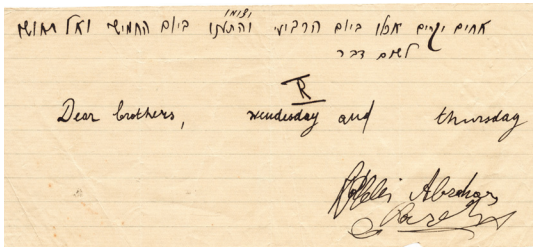 וצומו
אחים יקרים אכלו ביום הרביעי והתענו ביום החמישי ואל תחושו
לשום דבר
R
Dear brothers, wendesday and thursday
Rabbi Abraham